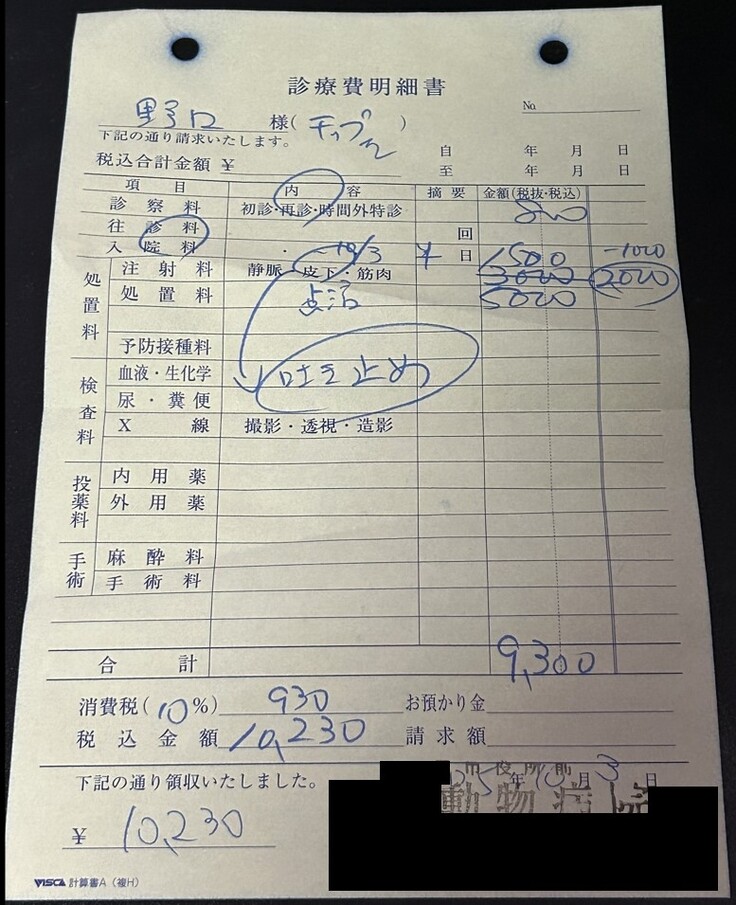 診療費明細書
No.
野口 様(チップ)
下記の通り請求いたします。
自 年 月 日
税込合計金額 ¥
至 年 月 日
項目 内容 摘要 金額(税抜・税込)
診察料 初診・再診・時間外特診 800
往診料 回
入院料 ・ ~10/3 1日 1500 -1000
処置料 注射料 静脈・皮下・筋肉 3000 2000
処置料 点滴 5000
予防接種料
検査料 血液・生化学 吐き止め
尿・糞便
X線 撮影・透視・造影
投薬料 内用薬
外用薬
手術 麻酔料
手術料
合計 9,300
消費税(10%) 930 お預かり金
税込金額 10,230 請求額
下記の通り領収いたしました。 5年10月3日
市役所前
動物病院
¥ 10,230
VISCA 計算書A(複H)